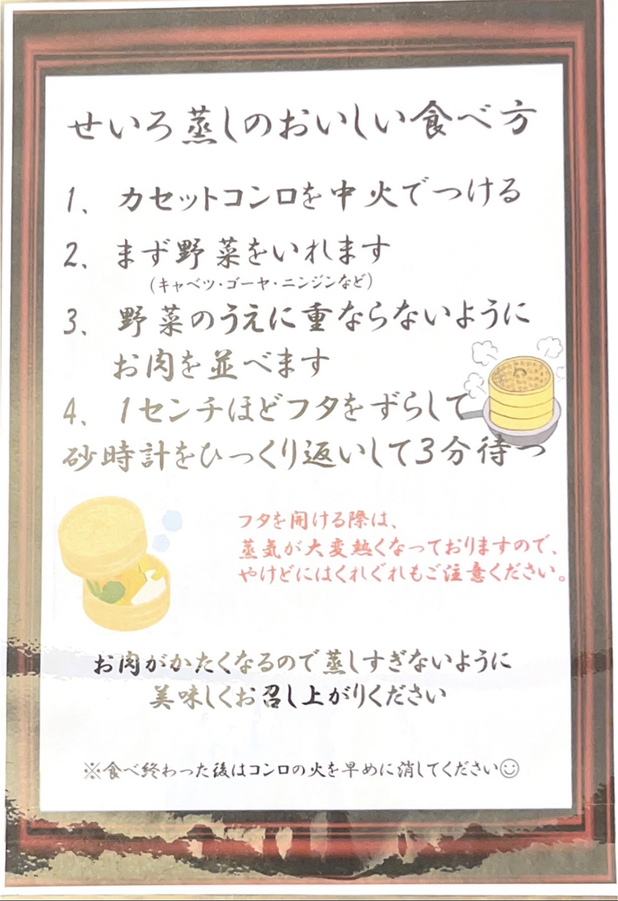 せいろ蒸しのおいしい食べ方
1、 カセットコンロを中火でつける
2、 まず野菜をいれます
(キャベツ・ゴーヤ・ニンジンなど)
3、 野菜のうえに重ならないように
お肉を並べます
4、 1センチほどフタをずらして
砂時計をひっくり返いして3分待つ
フタを開ける際は、
蒸気が大変熱くなっておりますので、
やけどにはくれぐれもご注意ください。
お肉がかたくなるので蒸しすぎないように
美味しくお召し上がりください
※食べ終わった後はコンロの火を早めに消してください☺